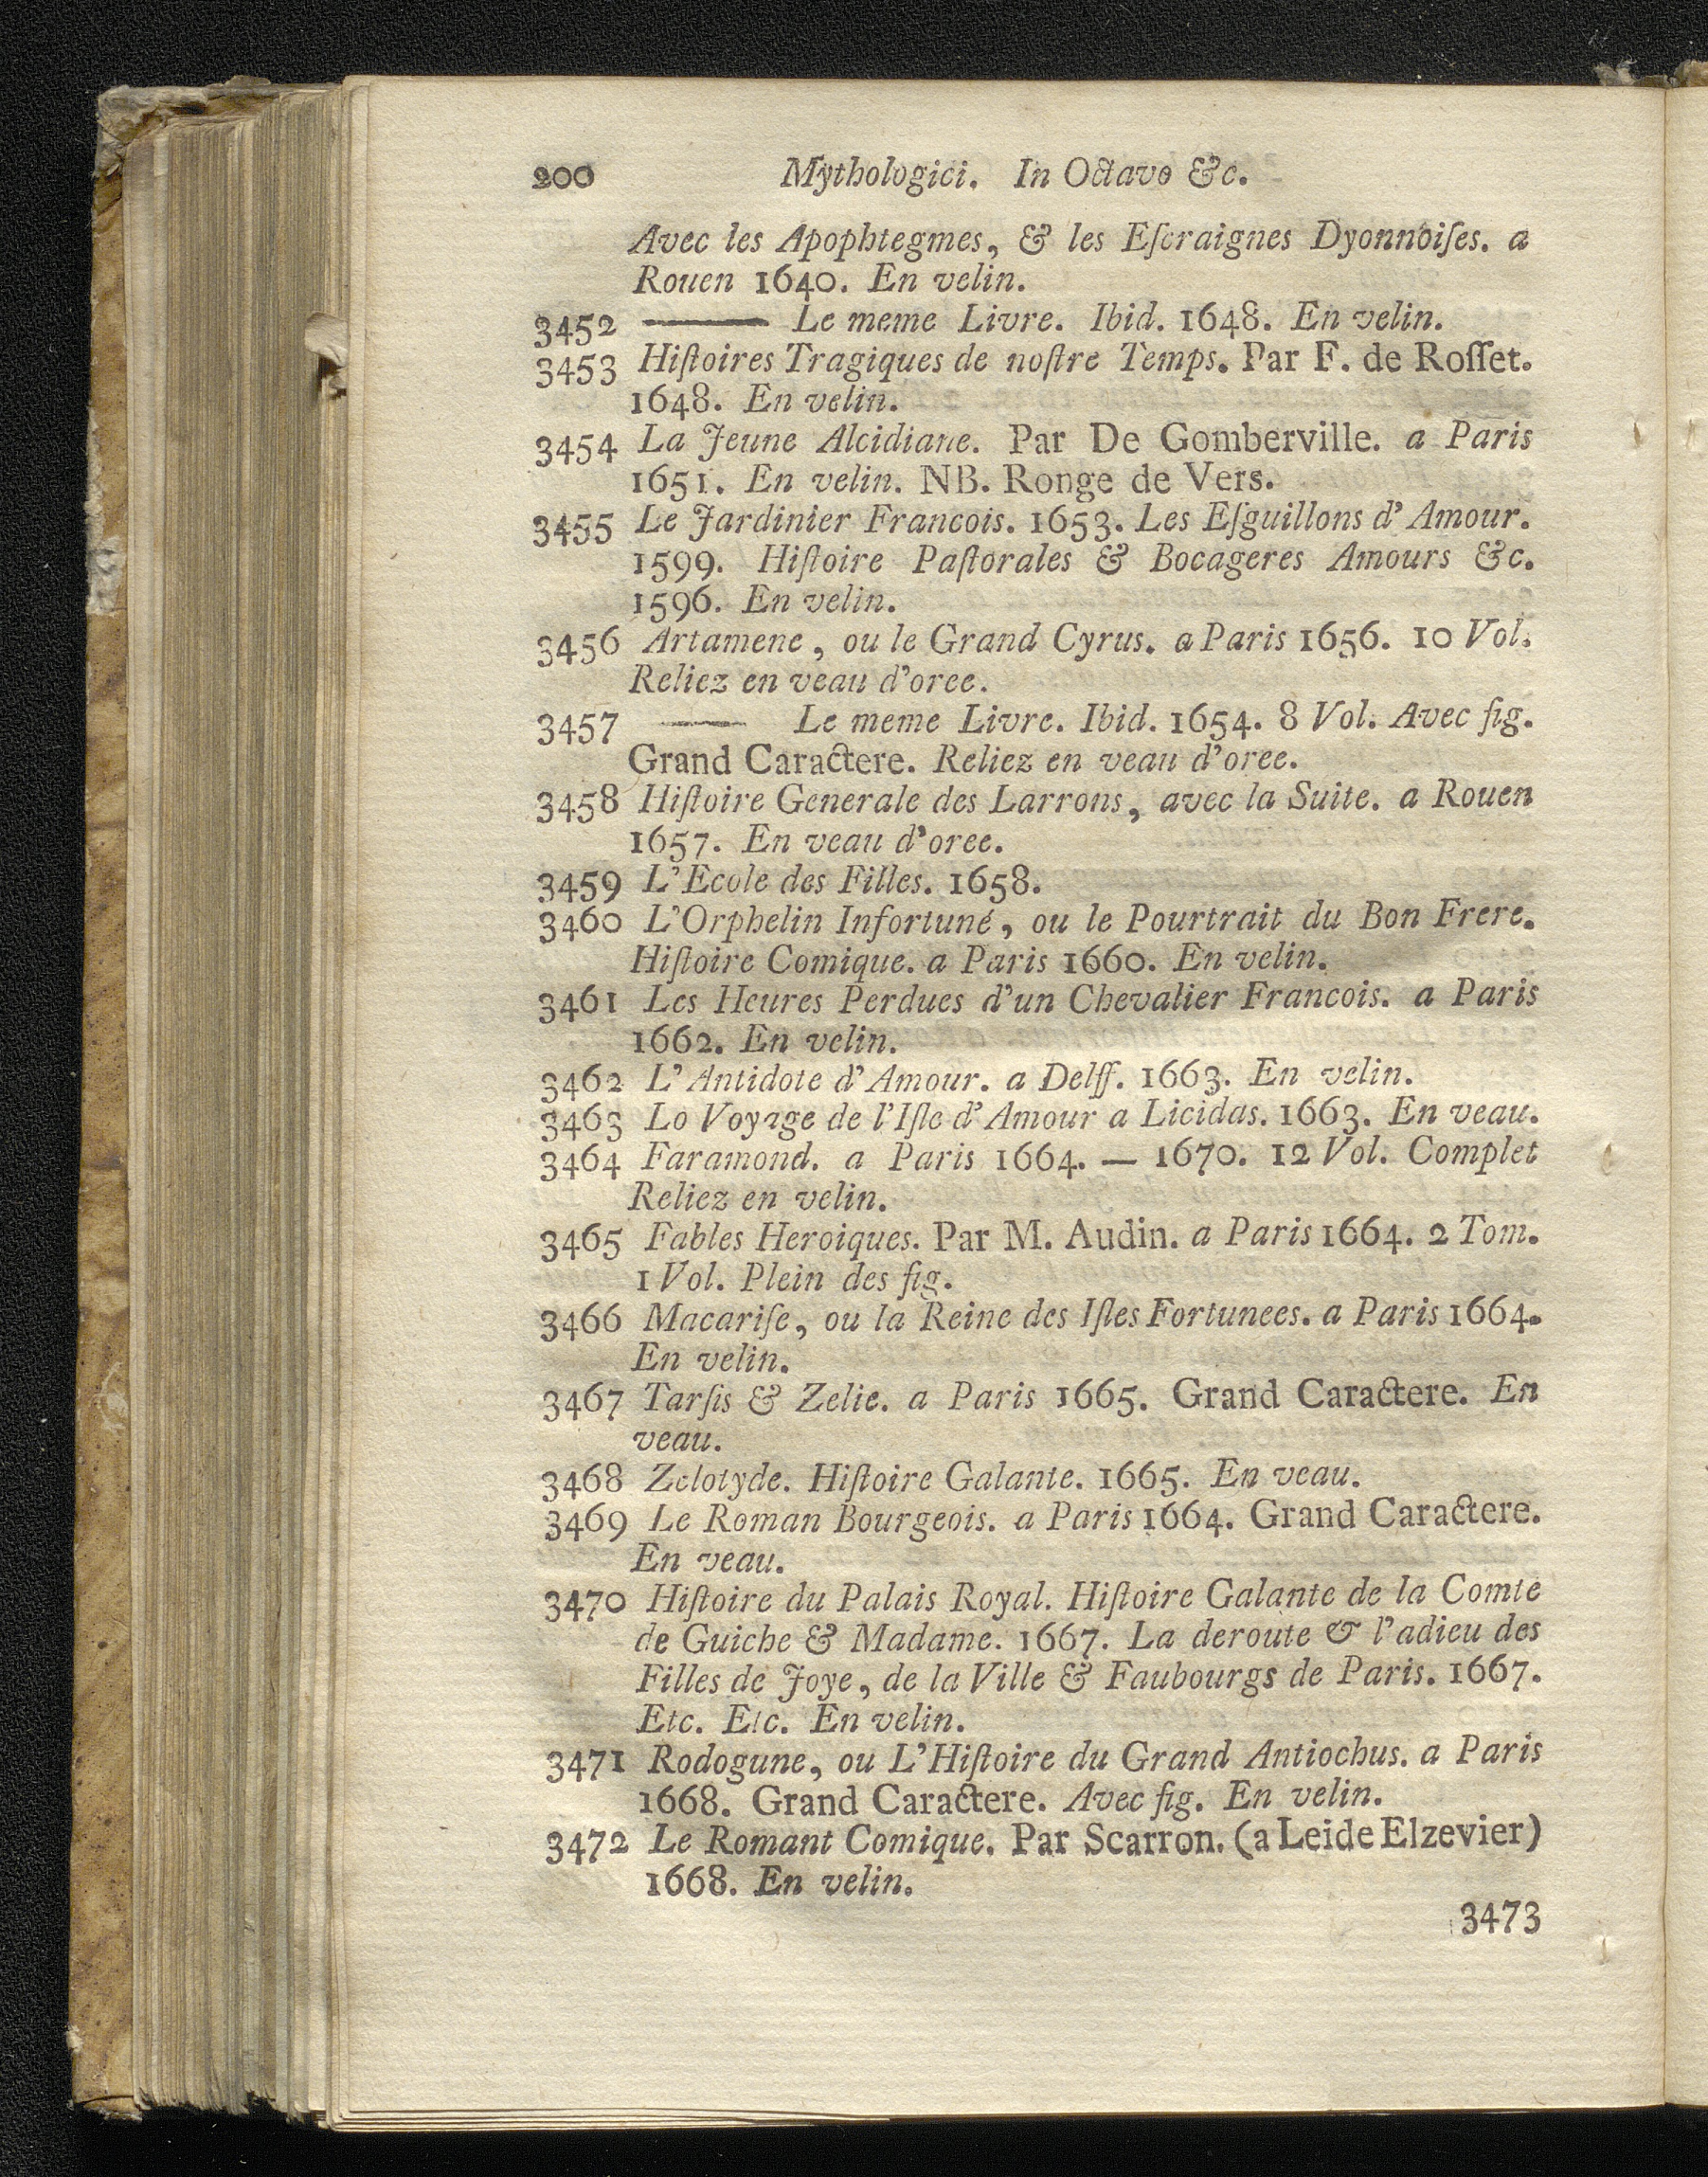 200 Mythologici. In Octavo &c.
Avec les Apophtegmes, & les Eſcraignes Dyonnoiſes. a
Rouen 1640. En velin.
3452 ——— Le meme Livre. Ibid. 1648. En velin.
3453 Hiſtoires Tragiques de noſtre Temps. Par F. de Roſſet.
1648. En velin.
3454 La Jeune Alcidiane. Par De Gomberville. a Paris
1651. En velin. NB. Ronge de Vers.
3455 Le Jardinier Francois. 1653. Les Eſguillons d'Amour.
1599. Hiſtoire Paſtorales & Bocageres Amours &c.
1596. En velin.
3456 Artamene, ou le Grand Cyrus. a Paris 1656. 10 Vol.
Reliez en veau d'oree.
3457 —— Le meme Livre. Ibid. 1654. 8 Vol. Avec fig.
Grand Caractere. Reliez en veau d'oree.
3458 Hiſtoire Generale des Larrons, avec la Suite. a Rouen
1657. En veau d'oree.
3459 L'Ecole des Filles. 1658.
3460 L'Orphelin Infortuné, ou le Pourtrait du Bon Frere.
Hiſtoire Comique. a Paris 1660. En velin.
3461 Les Heures Perdues d'un Chevalier Francois. a Paris
1662. En velin.
3462 L'Antidote d'Amour. a Delff. 1663. En velin.
3463 Lo Voyage de l'Iſle d'Amour a Licidas. 1663. En veau.
3464 Faramond. a Paris 1664. — 1670. 12 Vol. Complet
Reliez en velin.
3465 Fables Heroiques. Par M. Audin. a Paris 1664. 2 Tom.
1 Vol. Plein des fig.
3466 Macariſe, ou la Reine des Iſles Fortunees. a Paris 1664.
En velin.
3467 Tarſis & Zelie. a Paris 1665. Grand Caractere. En
veau.
3468 Zelotyde. Hiſtoire Galante. 1665. En veau.
3469 Le Roman Bourgeois. a Paris 1664. Grand Caractere.
En veau.
3470 Hiſtoire du Palais Royal. Hiſtoire Galante de la Comte
de Guiche & Madame. 1667. La deroute & l'adieu des
Filles de Joye, de la Ville & Faubourgs de Paris. 1667.
Etc. Etc. En velin.
3471 Rodogune, ou L'Hiſtoire du Grand Antiochus. a Paris
1668. Grand Caractere. Avec fig. En velin.
3472 Le Romant Comique. Par Scarron. (a Leide Elzevier)
1668. En velin.
3473